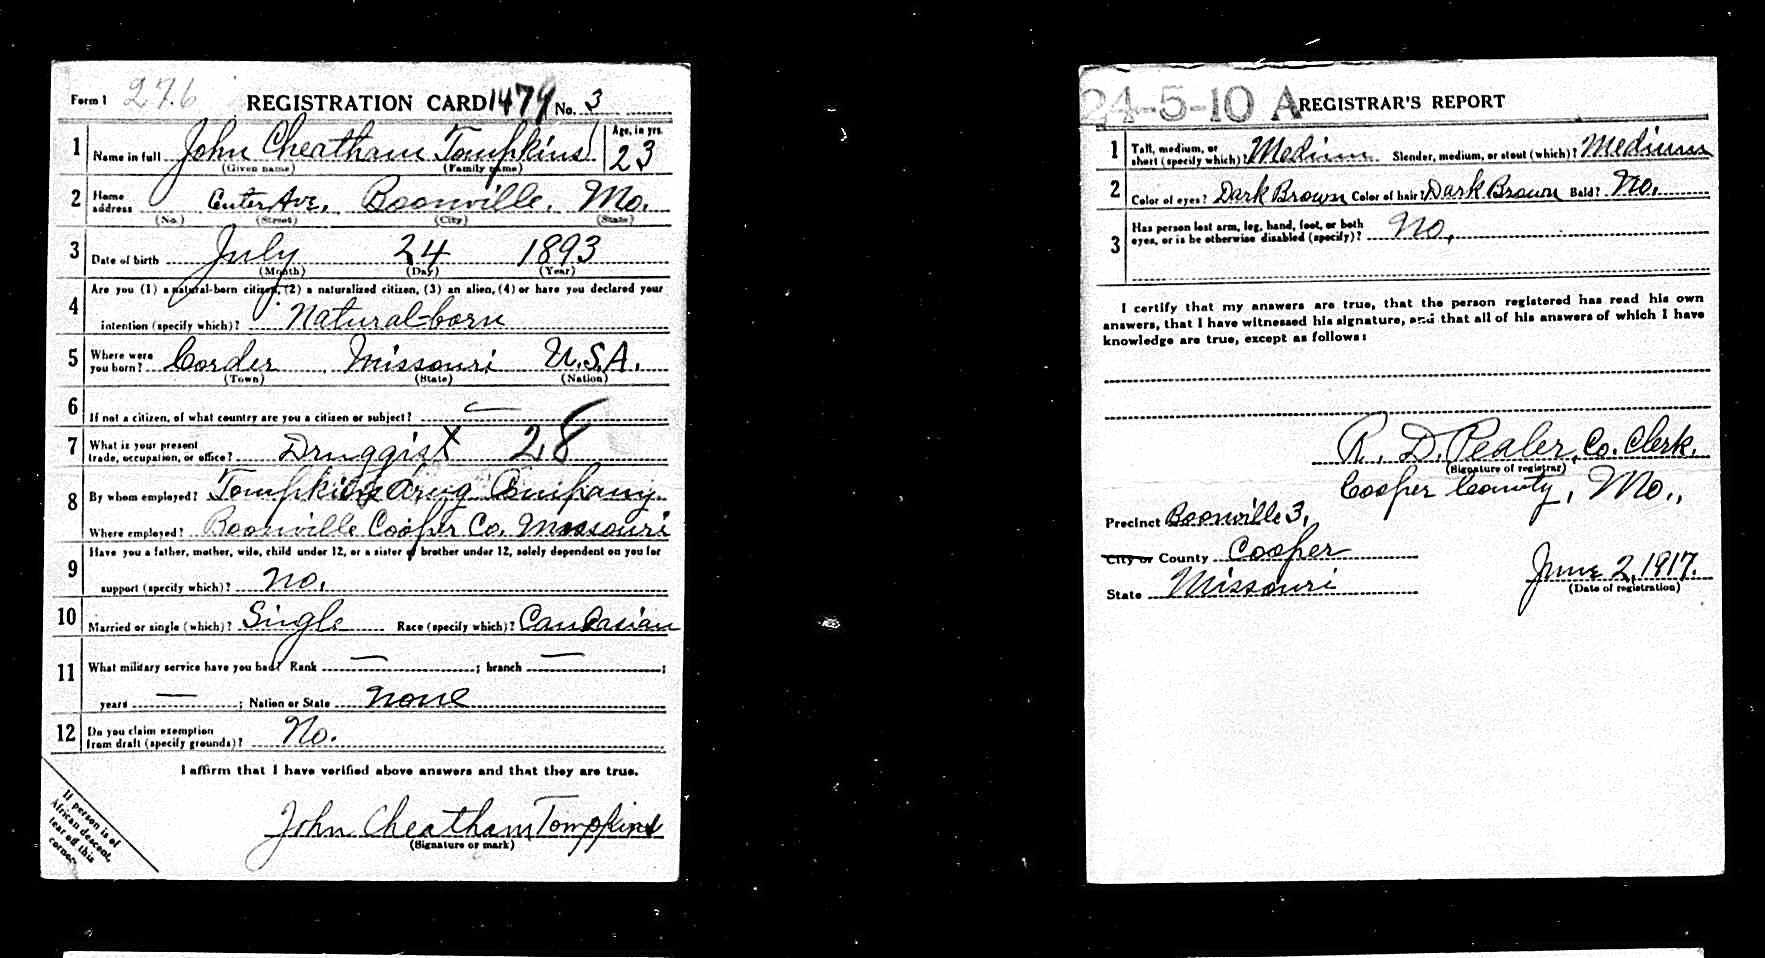 Form 1 276 REGISTRATION CARD 1479 No. 3
1 Name in full John Cheatham Tompkins Age, in yrs. 23
(Given name) (Family name)
2 Home address Center Ave. Boonville, Mo.
(No.) (Street) (City) (State)
3 Date of birth July 24 1893
(Month) (Day) (Year)
4 Are you (1) a natural-born citizen, (2) a naturalized citizen, (3) an alien, (4) or have you declared your
intention (specify which)? Natural-born
5 Where were you born? Corder Missouri U.S.A.
(Town) (State) (Nation)
6 If not a citizen, of what country are you a citizen or subject? —
7 What is your present trade, occupation, or office? Druggist X 28
8 By whom employed? Tompkins Drug Company
Where employed? Boonville Cooper Co. Missouri
9 Have you a father, mother, wife, child under 12, or a sister or brother under 12, solely dependent on you for
support (specify which)? No.
10 Married or single (which)? Single Race (specify which)? Caucasian
11 What military service have you had? Rank — ; branch — ;
years — ; Nation or State None
12 Do you claim exemption from draft (specify grounds)? No.
I affirm that I have verified above answers and that they are true.
John Cheatham Tompkins
(Signature or mark)
If person is of
African descent,
tear off this
corner.
24-5-10 A REGISTRAR'S REPORT
1 Tall, medium, or short (specify which)? Medium Slender, medium, or stout (which)? Medium
2 Color of eyes? Dark Brown Color of hair? Dark Brown Bald? No.
3 Has person lost arm, leg, hand, foot, or both
eyes, or is he otherwise disabled (specify)? No.
I certify that my answers are true, that the person registered has read his own
answers, that I have witnessed his signature, and that all of his answers of which I have
knowledge are true, except as follows:
R. D. Pealer, Co. Clerk,
(Signature of registrar)
Cooper County, Mo.,
Precinct Boonville 3,
City or County Cooper
State Missouri
June 2, 1917.
(Date of registration)